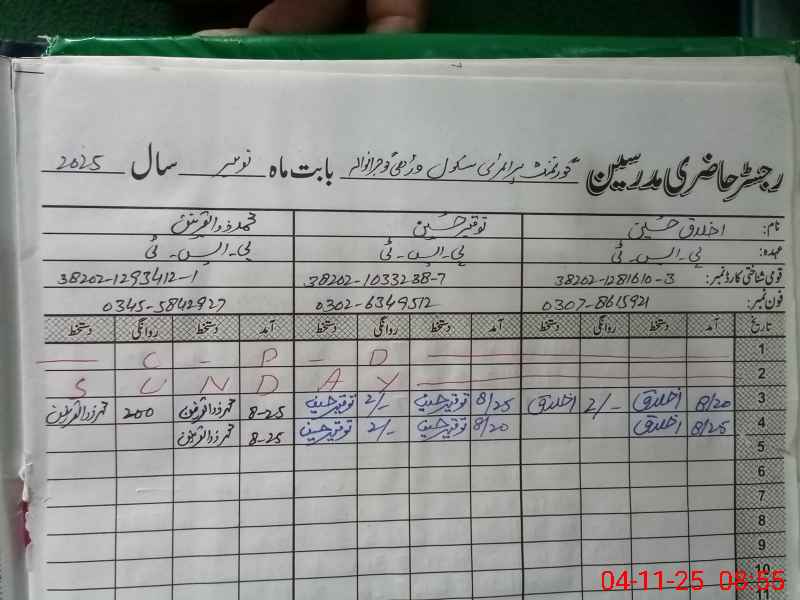 رجسٹر حاضری مدرسین گورنمنٹ پرائمری سکول ورڑھی گوجرانوالہ بابت ماہ نومبر سال 2025
نام: اخلاق حسین توقیر حسین محمد ذوالقرنین
عہدہ: پی۔ایس۔ٹی پی۔ایس۔ٹی پی۔ایس۔ٹی
قومی شناختی کارڈ نمبر: 38202-1281610-3 38202-1033238-7 38202-1293412-1
فون نمبر: 0307-8615921 0302-6349512 0345-5842927
تاریخ آمد دستخط روانگی دستخط آمد دستخط روانگی دستخط آمد دستخط روانگی دستخط
1 C - P - D
2 S U N D A Y
3 8/20 اخلاق 2/- اخلاق 8/25 توقیر حسین 2/- توقیر حسین 8-25 محمد ذوالقرنین 200 محمد ذوالقرنین
4 8/25 اخلاق 8/20 توقیر حسین 2/- توقیر حسین 8-25 محمد ذوالقرنین
5
6
7
8
9
10
11
04-11-25 08:55